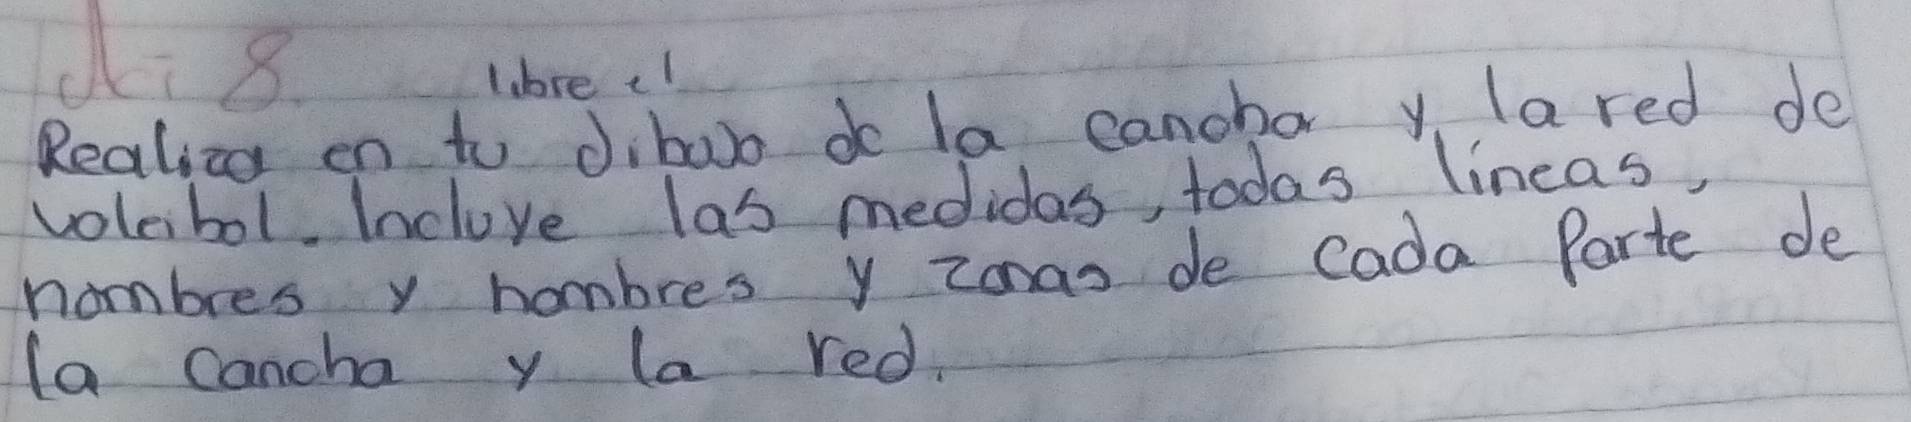 Ai 8
libre el
Realiza en tu dibujo de la cancha y la red de
voleibol. Incluye las medidas, todas líneas,
nombres y nombres y zonas de cada Parte de
la cancha y la red.